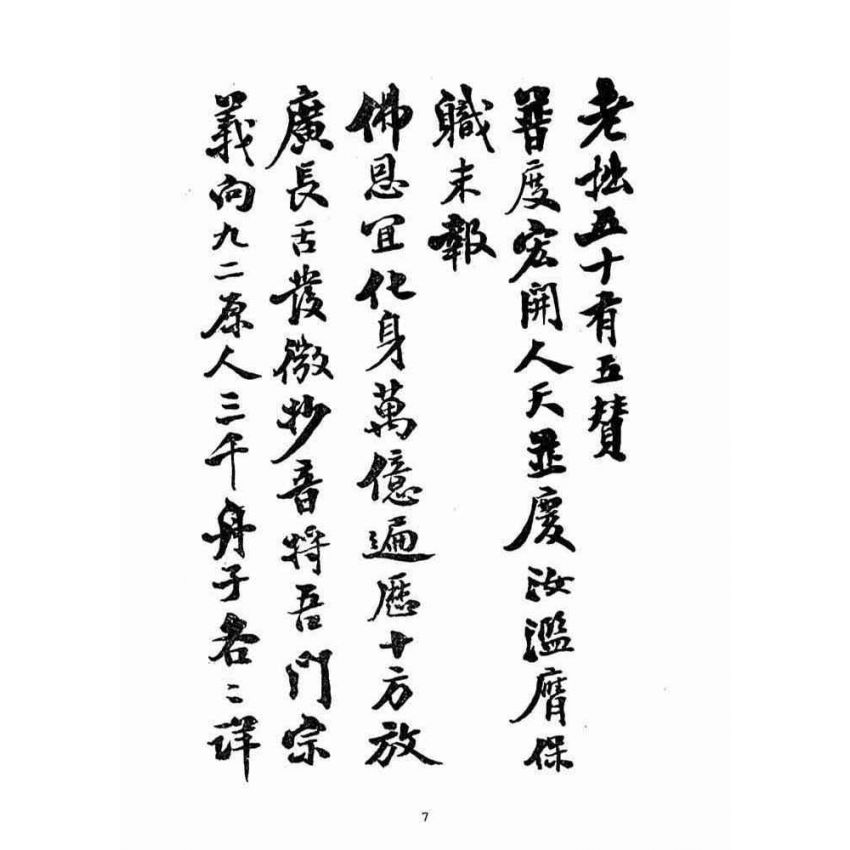 老拙五十有五贊
普度宏開人天並慶汝濫膺保
職未報
佛恩宜化身萬億遍歷十方放
廣長舌發微妙音將吾門宗
義向九二原人三千舟子各〻詳
7